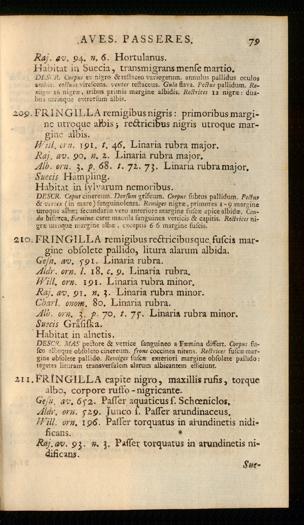 AVES. PASSERES. 79
Raj. av. 94. n. 6. Hortulanus.
Habitat in Suecia, transmigrans mense martio.
DESCR. Corpus ex nigro & testaceo variegatum. annulus pallidus oculos
ambit. rostrum virescens. venter testaceus. Gula flava. Pectus pallidum.
miges 18 nigræ, tribus primis margine albidis. Rectrices 12 nigræ: dua-
bus utrinque extrorsum albis.
209. FRINGILLA remigibus nigris: primoribus margi-
ne utroque albis; rectricibus nigris utroque mar-
gine albis.
Will. orn. 191. t. 46. Linaria rubra major.
Raj. av. 90. n. 2. Linaria rubra major.
Alb. orn. 3. p. 68. t. 72. 73. Linaria rubra major.
Suecis Hampling.
Habitat in sylvarum nemoribus.
DESCR. Caput cinereum. Dorsum griseum. Corpus subtus pallidum. Pectus
& vertex (in mare) sanguinolentus. Remiges nigræ, primores 1-9 margine
utroque albæ; secundariæ vero anteriore margine fusco apice albidæ. Cau-
da bifurca. Femina caret macula sanguinea verticis & capitis. Rectrices ni-
græ utroque margine albæ, exceptis 6 6 margine fuscis.
210. FRINGILLA remigibus rectricibusque fuscis mar-
gine obsolete pallido, litura alarum albida.
Gesn. av. 591. Linaria rubra.
Aldr. orn. l. 18. c. 9. Linaria rubra.
Will. orn. 191. Linaria rubra minor.
Raj. av. 91. n. 3. Linaria rubra minor.
Charl. onom. 80. Linaria rubra.
Alb. orn. 3. p. 70. t. 75. Linaria rubra minor.
Suecis Gråsiska.
Habitat in alnetis.
DESCR. MAS pectore & vertice sanguineo a Fœmina differt. Corpus fu-
sco albeoque obsoleto cinereum. frons coccinea nitens. Rectrices fuscæ mar-
gine obsolete pallido. Remiges fuscæ exteriori margine obsolete pallido:
tegetes lituram transversalem alarum albicantem efficiunt.
211. FRINGILLA capite nigro, maxillis rufis, torque
albo, corpore ruffo-nigricante.
Gesn. av. 652. Passer aquaticus s. Schœniclos.
Aldr. orn. 529. Junco s. Passer arundinaceus.
Will. orn. 196. Passer torquatus in arundinetis nidi-
ficans.
Raj. av. 93. n. 3. Passer torquatus in arundinetis ni-
dificans.
Sue-